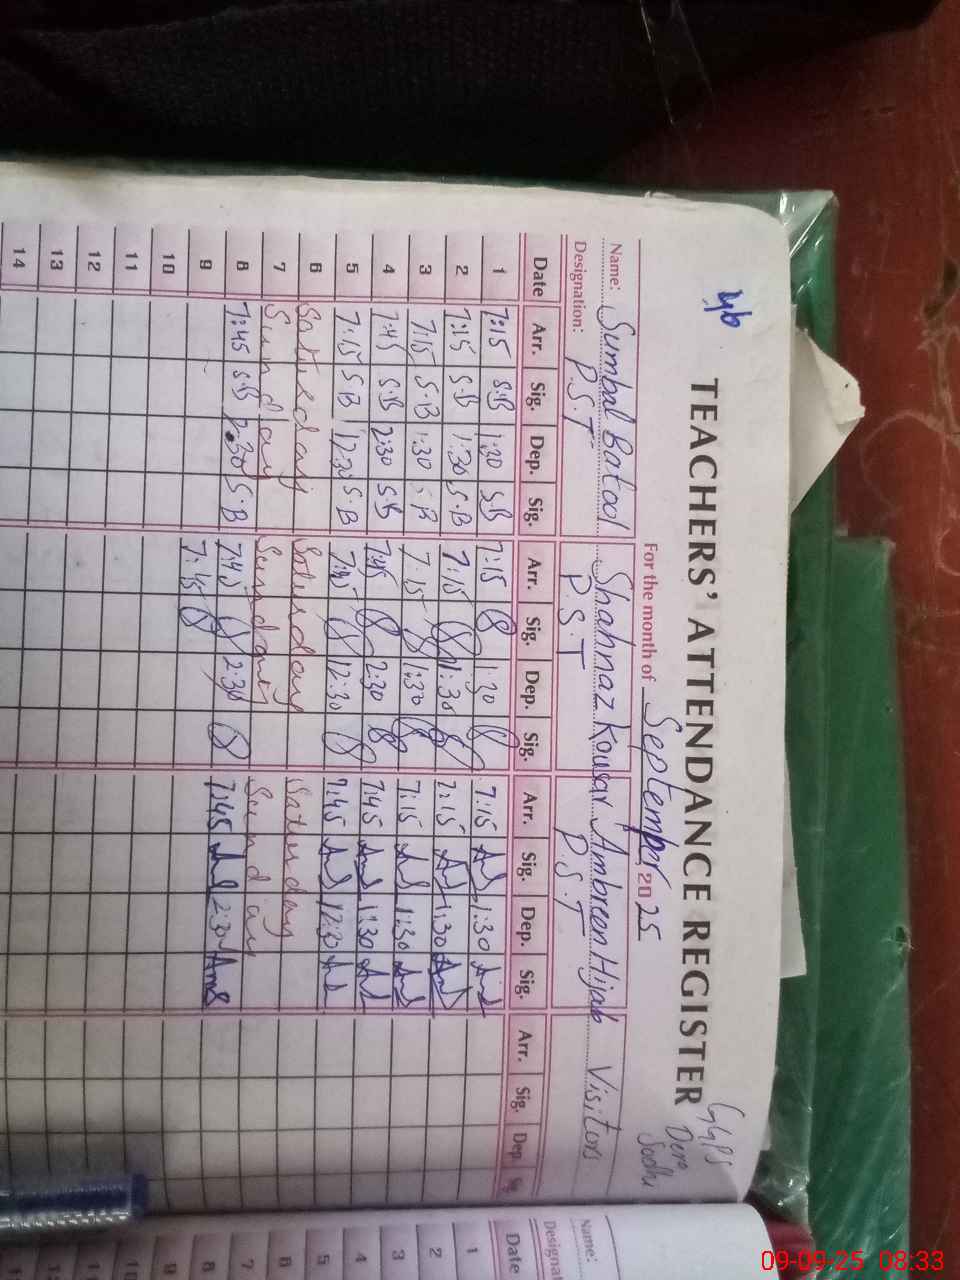 46
GGPS
Dera
Sodhi
TEACHERS' ATTENDANCE REGISTER
For the month of September 2025
Name: Sumbal Batool Shahnaz Kousar Ambreen Hijab Visitors
Designation: P.S.T P.S.T P.S.T
Date Arr. Sig. Dep. Sig. Arr. Sig. Dep. Sig. Arr. Sig. Dep. Sig. Arr. Sig. Dep. Sig.
1 7:15 S.B 1:30 S.B 7:15 1:30 7:15 1:30
2 7:15 S.B 1:30 S.B 7:15 1:30 7:15 1:30
3 7:15 S.B 1:30 S.B 7:15 1:30 7:15 1:30
4 7:45 S.B 2:30 S.B 7:45 2:30 7:45 1:30
5 7:15 S.B 12:30 S.B 7:45 12:30 7:45 12:30
6 Saturday Saturday Saturday
7 Sunday Sunday Sunday
8 7:45 S.B 2:30 S.B 7:45 2:30 7:45 2:30
9 7:45
10
11
12
13
14
Name:
Designat
Date
1
2
3
4
5
6
7
8
9
10
11
09-09-25 08:33